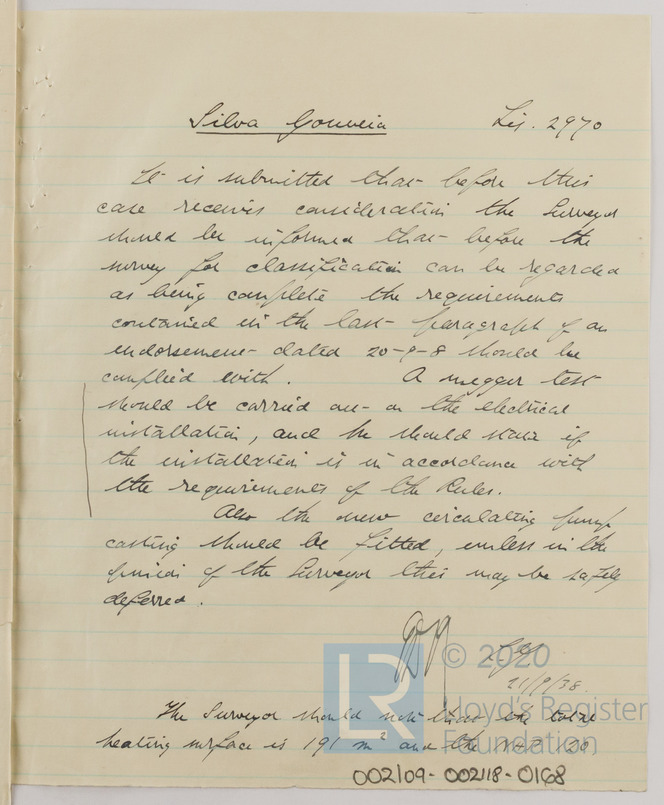 Silva Gouveia Lis. 2970
It is submitted that before this
case receives consideration the Surveyor
should be informed that before the
survey for classification can be regarded
as being complete the requirements
contained in the last paragraph of an
endorsement dated 20-9-8 should be
complied with. A megger test
should be carried out on the electrical
installation, and he should state if
the installation is in accordance with
the requirements of the Rules.
Also the new circulating pump
casting should be fitted, unless in the
opinion of the Surveyor this may be safely
deferred.
© 2020
21/9/38.
Lloyd's Register
Foundation
The Surveyor should note that the total
heating surface is 191 m² and the
002/09-002118-0168